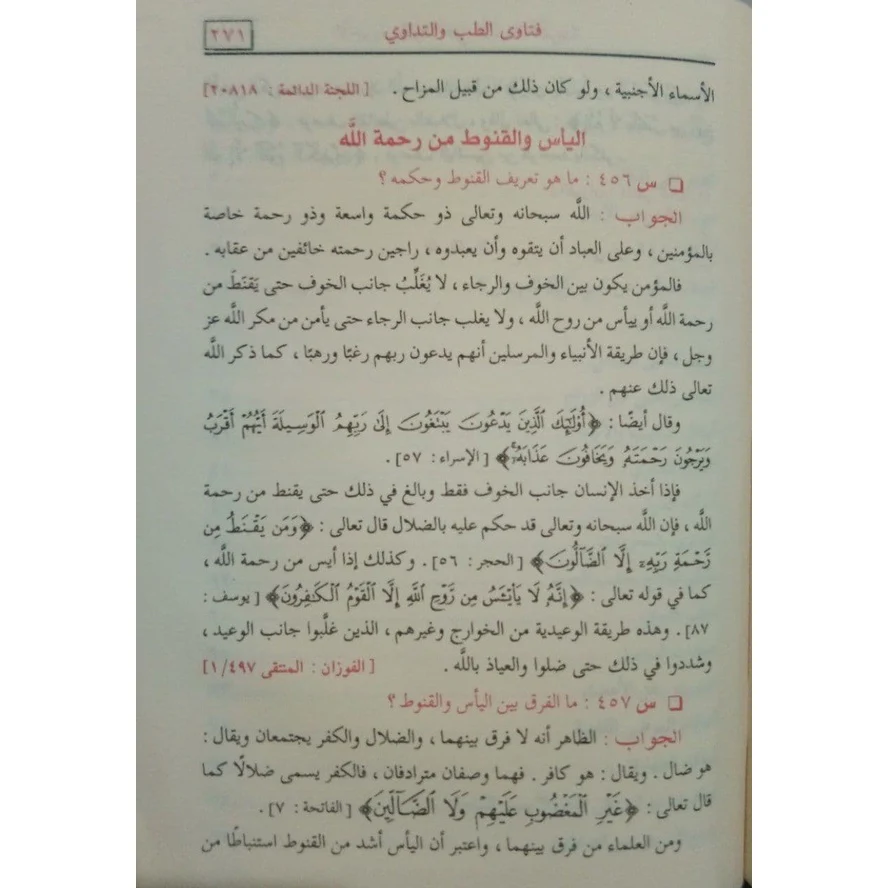 فتاوى الطب والتداوي
٢٧١
الأسماء الأجنبية ، ولو كان ذلك من قبيل المزاح . [ اللجنة الدائمة : ٢٠٨١٨ ]
اليأس والقنوط من رحمة اللَّه
❑ س ٤٥٦ : ما هو تعريف القنوط وحكمه ؟
الجواب : اللَّه سبحانه وتعالى ذو حكمة واسعة وذو رحمة خاصة
بالمؤمنين ، وعلى العباد أن يتقوه وأن يعبدوه ، راجين رحمته خائفين من عقابه .
فالمؤمن يكون بين الخوف والرجاء ، لا يُغَلِّبُ جانب الخوف حتى يَقنَطَ من
رحمة اللَّه أو ييأس من روح اللَّه ، ولا يغلب جانب الرجاء حتى يأمن من مكر اللَّه عز
وجل ، فإن طريقة الأنبياء والمرسلين أنهم يدعون ربهم رغبًا ورهبًا ، كما ذكر اللَّه
تعالى ذلك عنهم .
وقال أيضًا : ﴿أُوْلَٰٓئِكَ ٱلَّذِينَ يَدۡعُونَ يَبۡتَغُونَ إِلَىٰ رَبِّهِمُ ٱلۡوَسِيلَةَ أَيُّهُمۡ أَقۡرَبُ
وَيَرۡجُونَ رَحۡمَتَهُۥ وَيَخَافُونَ عَذَابَهُۥٓۚ﴾ [ الإسراء : ٥٧ ] .
فإذا أخذ الإنسان جانب الخوف فقط وبالغ في ذلك حتى يقنط من رحمة
اللَّه ، فإن اللَّه سبحانه وتعالى قد حكم عليه بالضلال قال تعالى : ﴿وَمَن يَقۡنَطُ مِن
رَّحۡمَةِ رَبِّهِۦٓ إِلَّا ٱلضَّآلُّونَ﴾ [ الحجر : ٥٦ ] . وكذلك إذا أيس من رحمة اللَّه ،
كما في قوله تعالى : ﴿إِنَّهُۥ لَا يَاْيۡـَٔسُ مِن رَّوۡحِ ٱللَّهِ إِلَّا ٱلۡقَوۡمُ ٱلۡكَٰفِرُونَ﴾ [ يوسف :
٨٧ ] . وهذه طريقة الوعيدية من الخوارج وغيرهم ، الذين غلَّبوا جانب الوعيد ،
وشددوا في ذلك حتى ضلوا والعياذ باللَّه . [ الفوزان : المنتقى ١/٤٩٧ ]
❑ س ٤٥٧ : ما الفرق بين اليأس والقنوط ؟
الجواب : الظاهر أنه لا فرق بينهما ، والضلال والكفر يجتمعان ويقال :
هو ضال . ويقال : هو كافر . فهما وصفان مترادفان ، فالكفر يسمى ضلالًا كما
قال تعالى : ﴿غَيۡرِ ٱلۡمَغۡضُوبِ عَلَيۡهِمۡ وَلَا ٱلضَّآلِّينَ﴾ [ الفاتحة : ٧ ] .
ومن العلماء من فرق بينهما ، واعتبر أن اليأس أشد من القنوط استنباطًا من